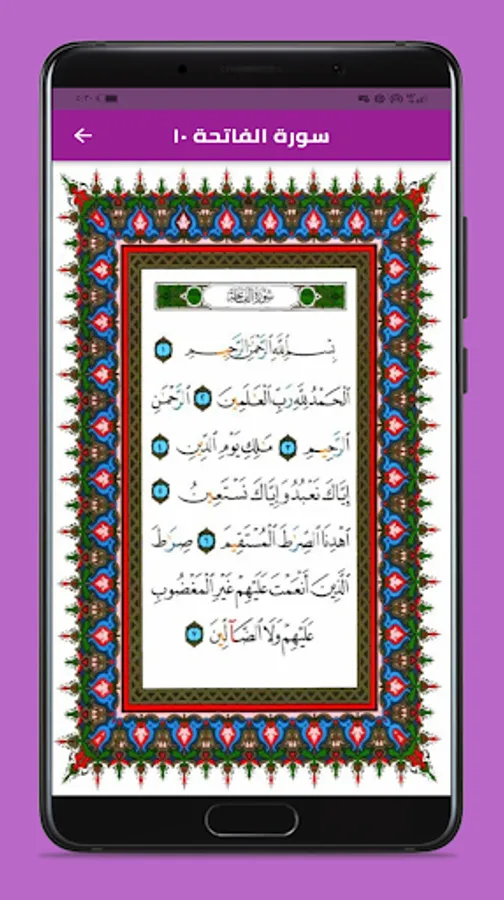 ٥:٣٠
سورة الفاتحة ١٠
سُورَةُ الْفَاتِحَةِ
بِسْمِ ٱللَّهِ ٱلرَّحْمَٰنِ ٱلرَّحِيمِ ١
ٱلْحَمْدُ لِلَّهِ رَبِّ ٱلْعَٰلَمِينَ ٢ ٱلرَّحْمَٰنِ
ٱلرَّحِيمِ ٣ مَٰلِكِ يَوْمِ ٱلدِّينِ ٤
إِيَّاكَ نَعْبُدُ وَإِيَّاكَ نَسْتَعِينُ ٥
ٱهْدِنَا ٱلصِّرَٰطَ ٱلْمُسْتَقِيمَ ٦ صِرَٰطَ
ٱلَّذِينَ أَنْعَمْتَ عَلَيْهِمْ غَيْرِ ٱلْمَغْضُوبِ
عَلَيْهِمْ وَلَا ٱلضَّآلِّينَ ٧